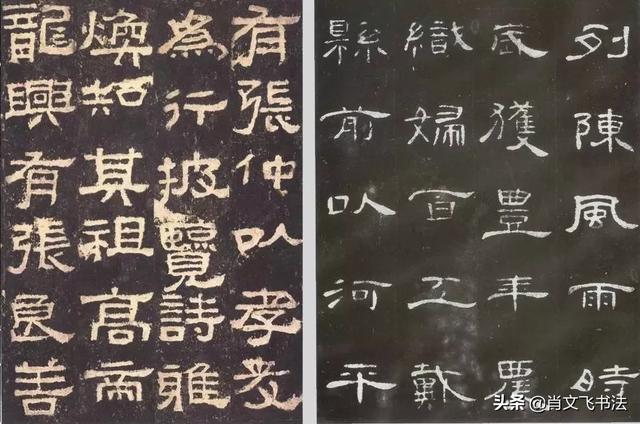 有張仲以孝友
為行披覽詩雅
煥知其祖高帝
龍興有張良善
列陳風雨時
歲獲豊年
織婦百工戴
縣前以河平
头条 @肖文飞书法